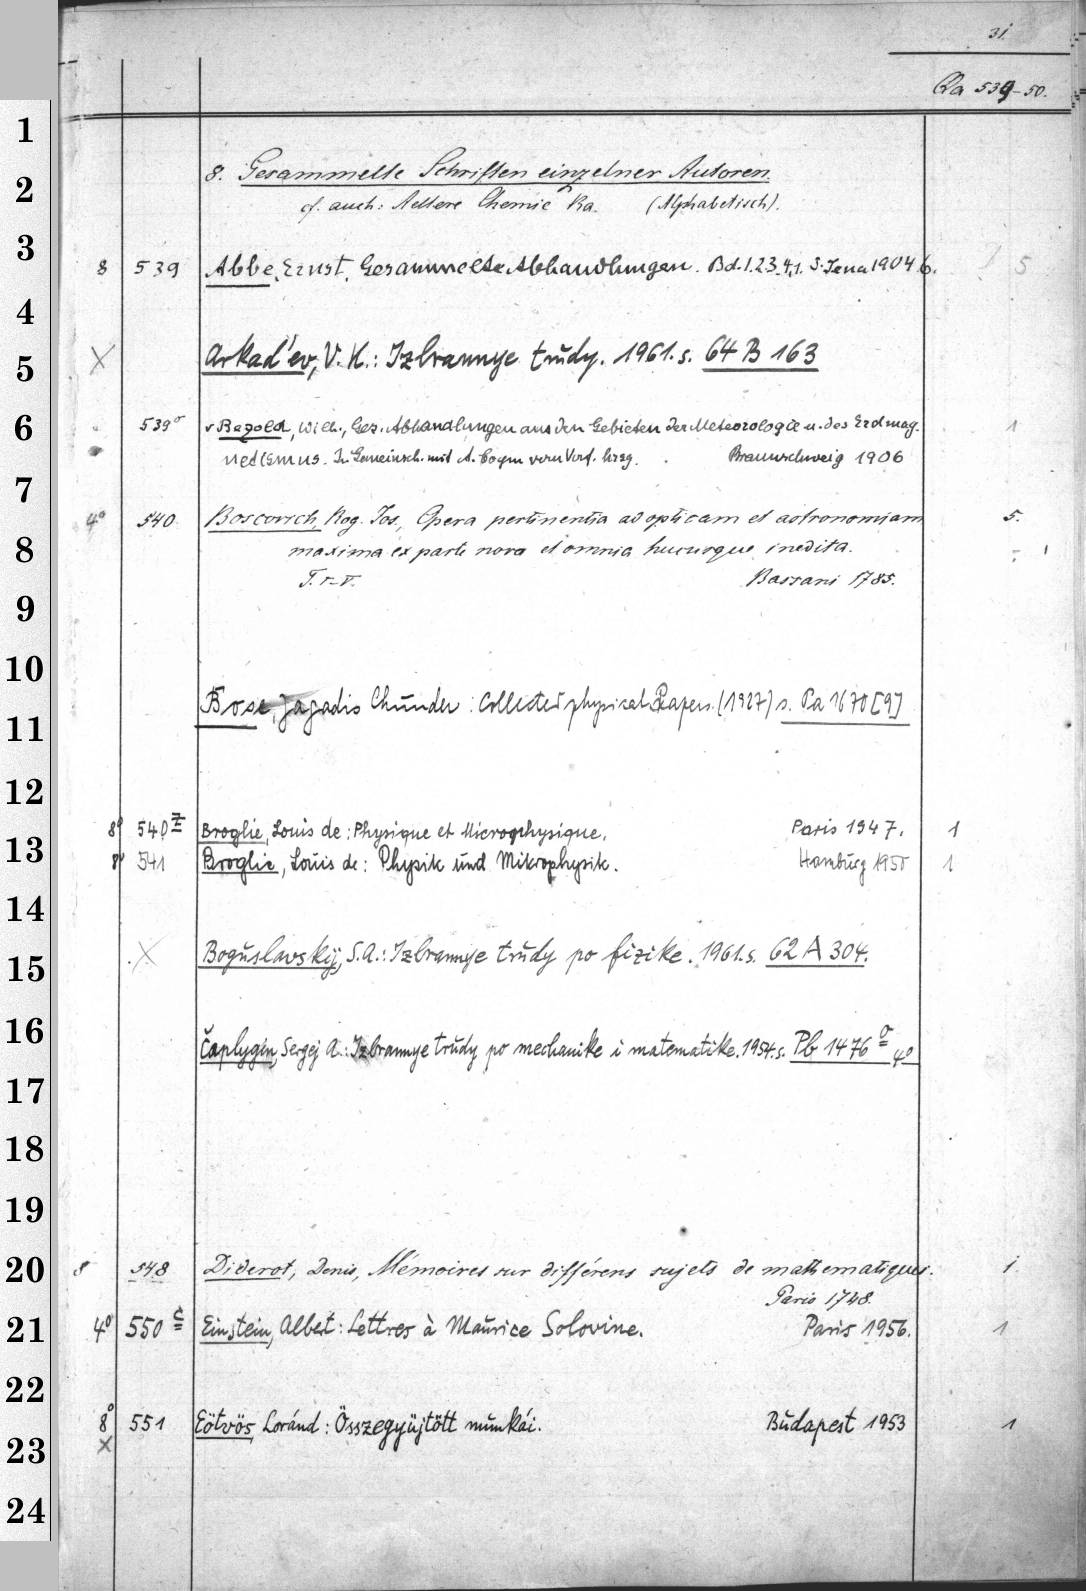 31.
Qa 539-50.
8. Gesammelte Schriften einzelner Autoren.
cf. auch: Aeltere Chemie Ra. (Alphabetisch).
8 539 Abbe, Ernst, Gesammelte Abhandlungen. Bd. 1.2.3.4,1. Jena 1904 5
X Arkad'ev, V. K.: Izbrannye trudy. 1961. s. 64 B 163
539 v Bezold, Wilh., Ges. Abhandlungen aus den Gebieten der Meteorologie u. des Erdmag- 1
netismus. In Gemeinsch. mit A. Coym vom Verf. hrsg. Braunschweig 1906
4° 540 Boscovich, Rog. Jos., Opera pertinentia ad opticam et astronomiam 5.
maxima ex parte nova et omnia hucusque inedita.
T. I-V. Bassani 1785.
Bose, Jagadis Chunder: Collected physical Papers. (1927) s. Pa 1670 [9]
8° 540 z Broglie, Louis de: Physique et Microphysique. Paris 1947. 1
8° 541 Broglie, Louis de: Physik und Mikrophysik. Hamburg 1950 1
X Boguslavskij, S. A.: Izbrannye trudy po fizike. 1961. s. 62 A 304.
Čaplygin, Sergej A.: Izbrannye trudy po mechanike i matematike. 1954. s. Pb 1476 a 4°
8 548 Diderot, Denis, Mémoires sur différens sujets de mathematiques. 1
Paris 1748.
4° 550 c Einstein, Albert: Lettres à Maurice Solovine. Paris 1956. 1
8° 551 Eötvös Loránd: Összegyüjtött munkái. Budapest 1953 1
X
1
2
3
4
5
6
7
8
9
10
11
12
13
14
15
16
17
18
19
20
21
22
23
24